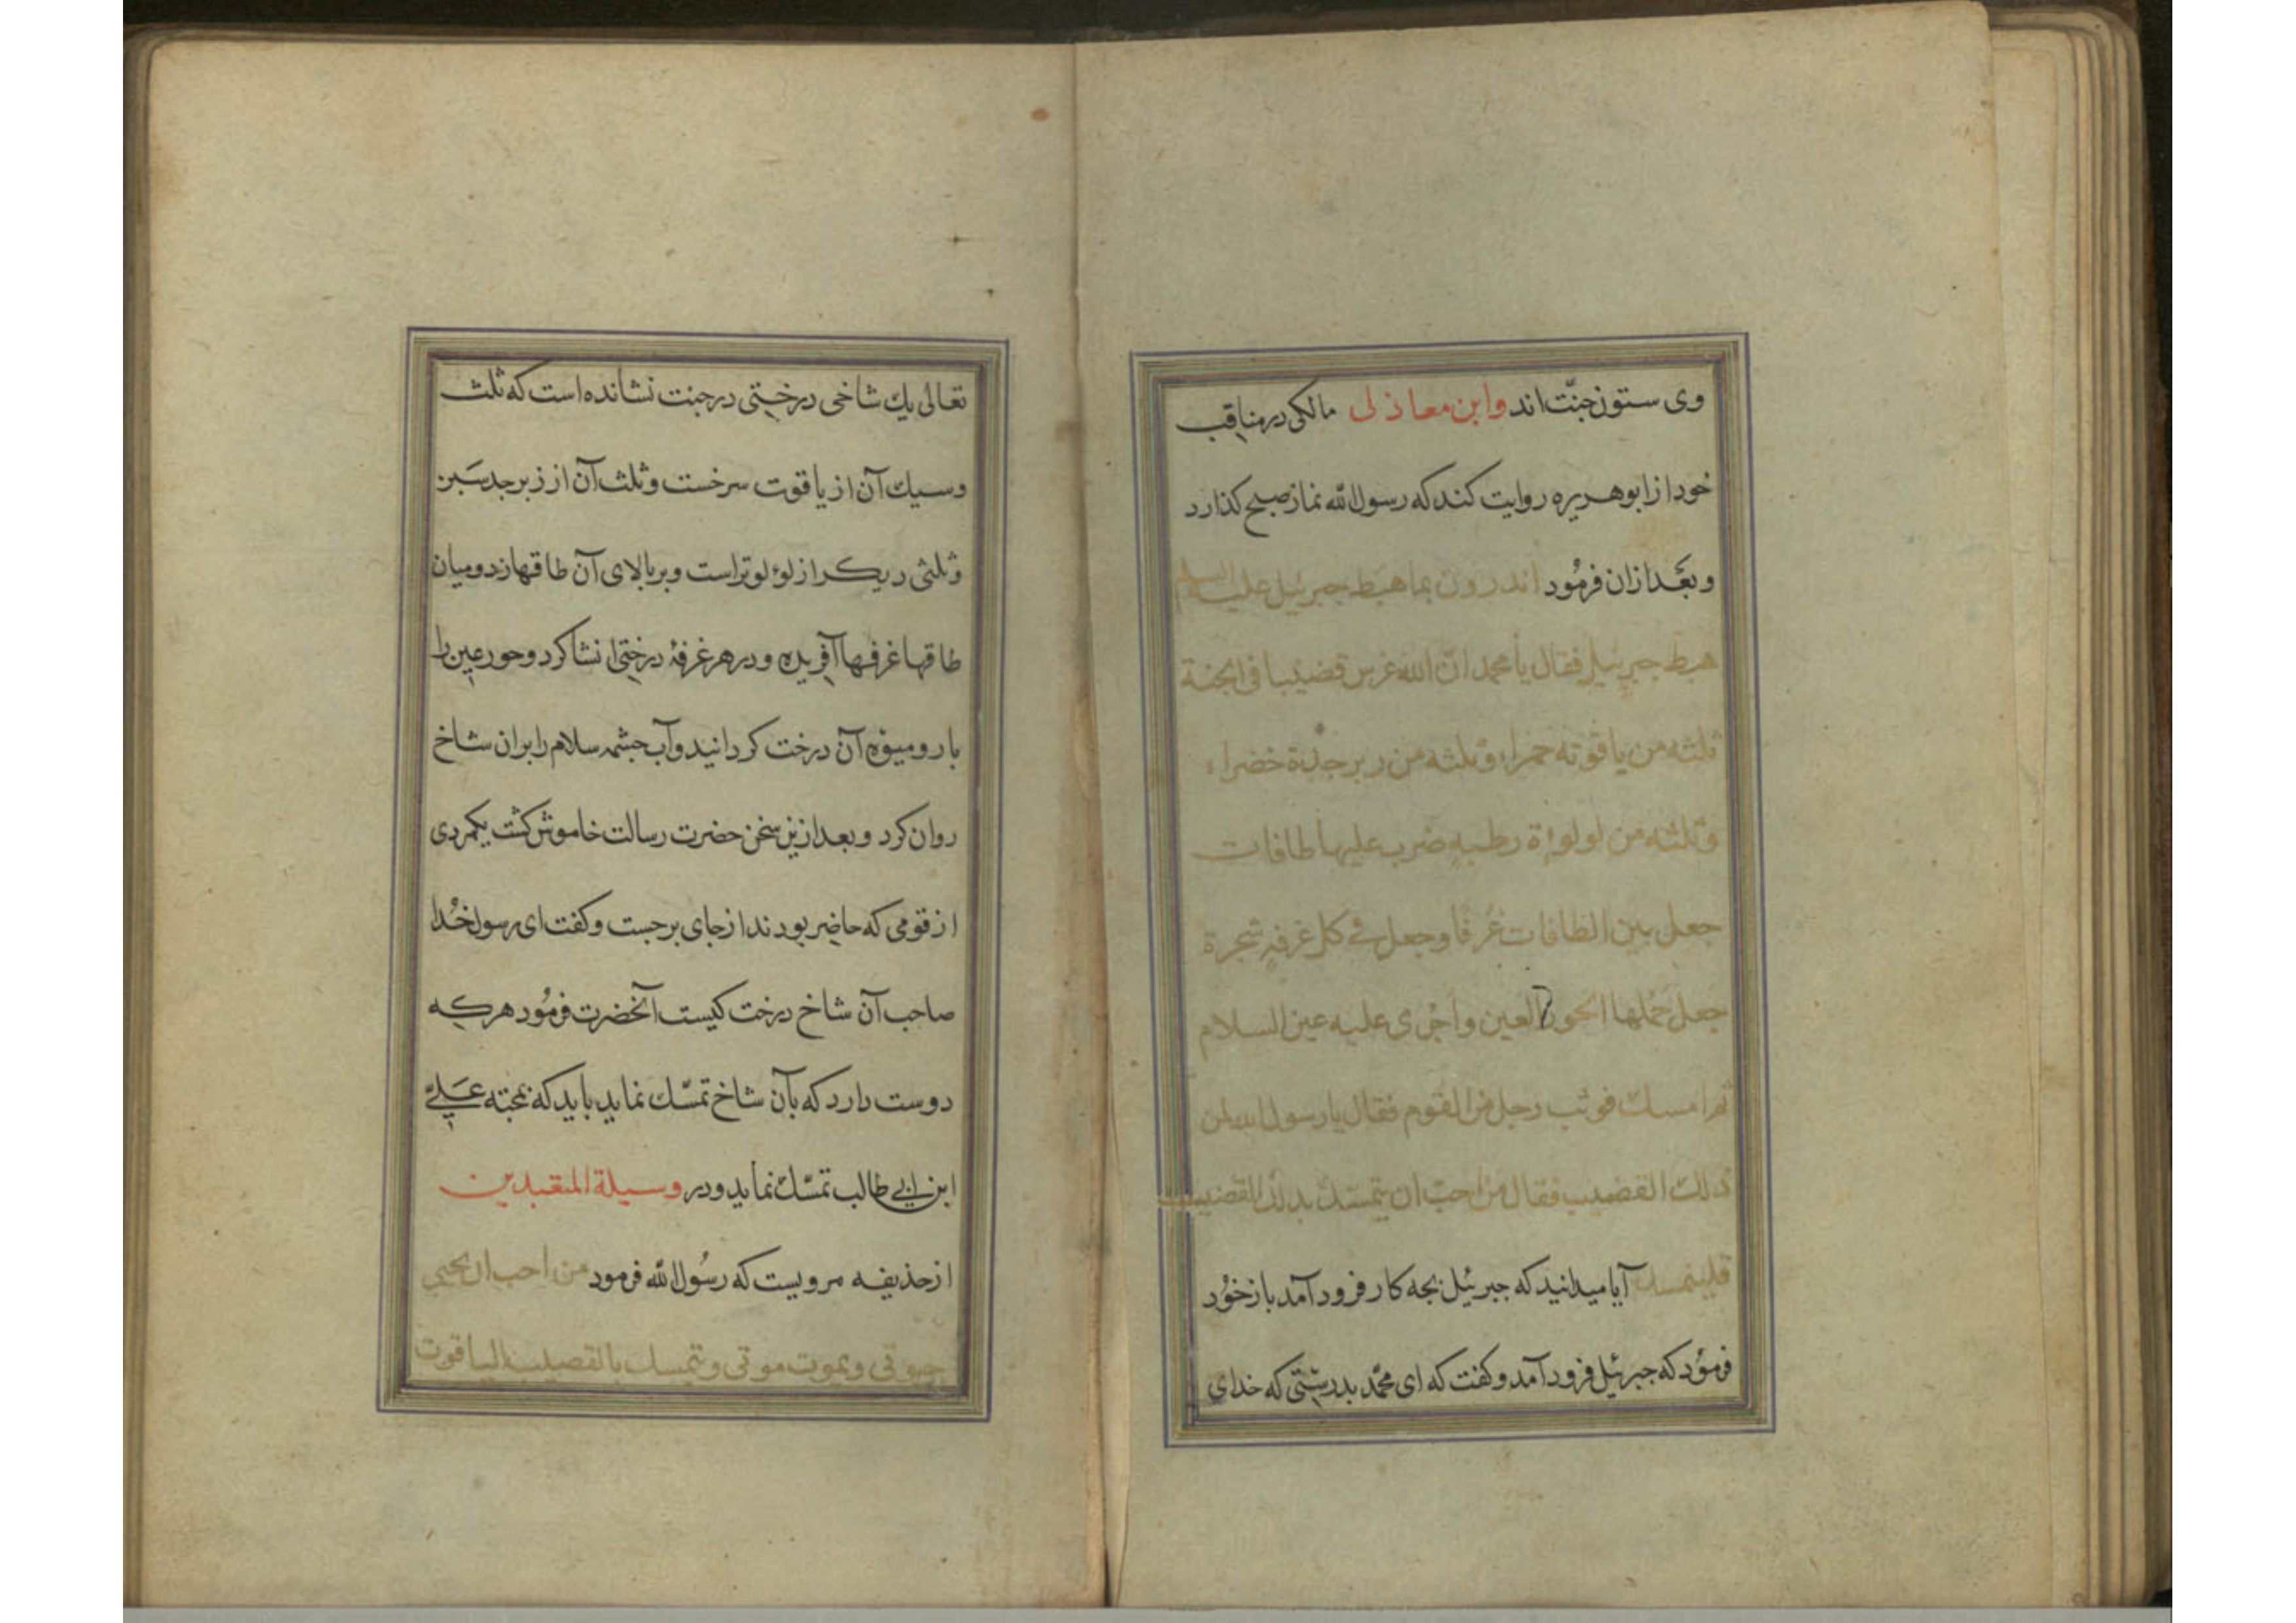 وی ستون جنّت اند وابن معاذلی مالکی در مناقب
خود از ابو هریره روایت کند که رسول الله نماز صبح کذارد
و بعَد ازان فرمُود اتدرون بما هبَط جبرئیل علیه السلم
هبط جبرئیل فقال یا محمد انّ الله غرس قضیبا فی الجنة
ثلثه من یاقوته حمراء وثلثه من زبرجدة خضراء
وثلثه من لولوءة رطبه ضرب علیها طاقات
جعل بین الطاقات غُرفا وجعل فی کل غرفهٍ شجرة
جعل حَملها الحور العین واَجری علیه عین السلام
ثم امسک فوثب رجل من القوم فقال یا رسول الله لمن
ذلک القضیب فقال من احبّ ان یتمسّک بذلک القضیب
فلیتمسک آیا میدانید که جبرئیل بچه کار فرود آمد باز خوُد
فرموُد که جبرئیل فرود آمد و کفت که ای محمّد بدرستی که خدای
تعالی یک شاخی درختی در جنت نشانده است که ثلث
و سیک آن از یاقوت سرخست و ثلث آن از زبرجد سَبز
و ثلثی دیکر از لؤلو تر است و بر بالای آن طاقها زد و میان
طاقها غرفها آفریده و در هر غرفهٔ درختی انشا کرد و حور عین را
بار و میوهٔ آن درخت کردانید و آب چشمه سلام را بران شاخ
روان کرد و بعد ازین سخن حضرت رسالت خاموش کشت یکمردی
از قومی که حاضر بودند از جای برجست و کفت ای رسول خُدا
صاحب آن شاخ درخت کیست آنحضرت فرمُود هر که
دوست دارد که بآن شاخ تمسّک نماید باید که بمحبته عَلیّ
ابن ابی طالب تمسّک نماید و در وسیلة المتعبدین
از حذیفه مرویست که رسُول الله فرمود من احب ان یحیی
حیوتی ویموت موتی ویتمسک بالقصیب الیاقوت